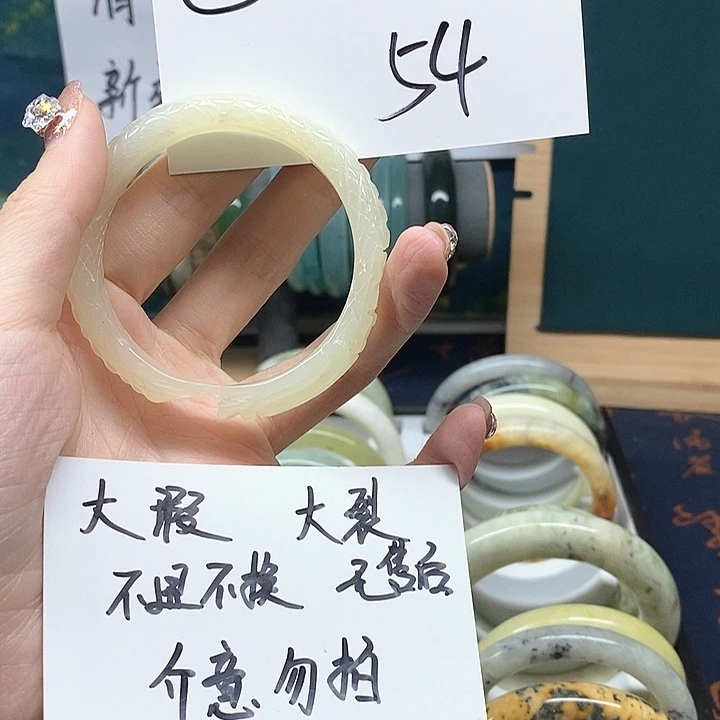 消
新
54
大瑕 大裂
不退不换 无售后
介意勿拍